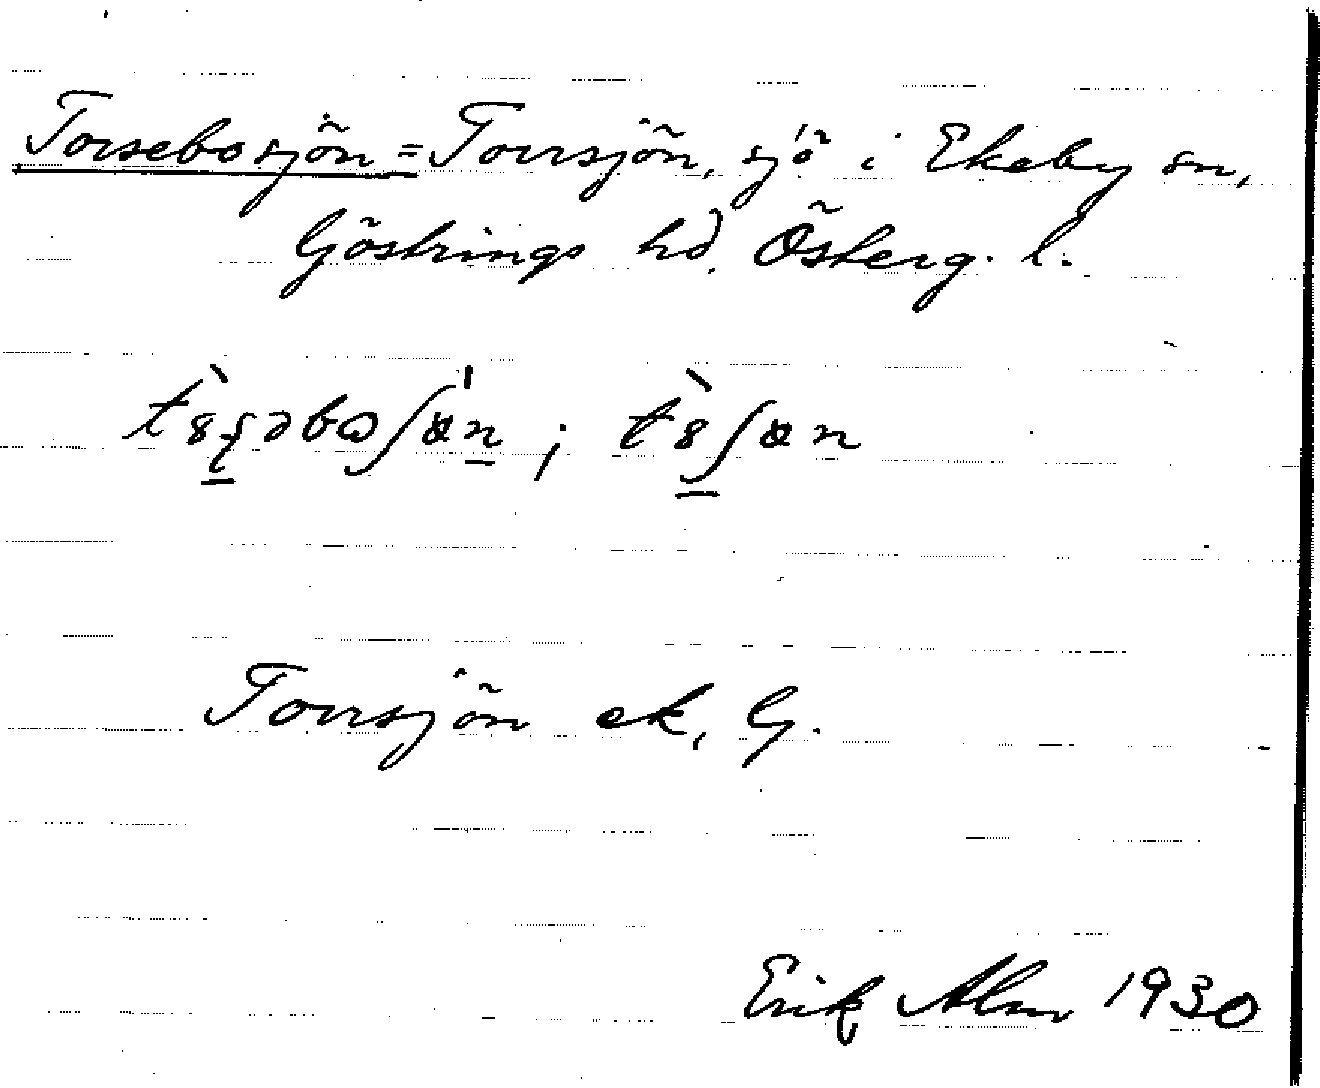 Torsebosjön = Torrsjön, sjö i Ekeby sn,
Göstrings hd, Österg. l.
Torrsjön ek, G.
Erik Alm 1930